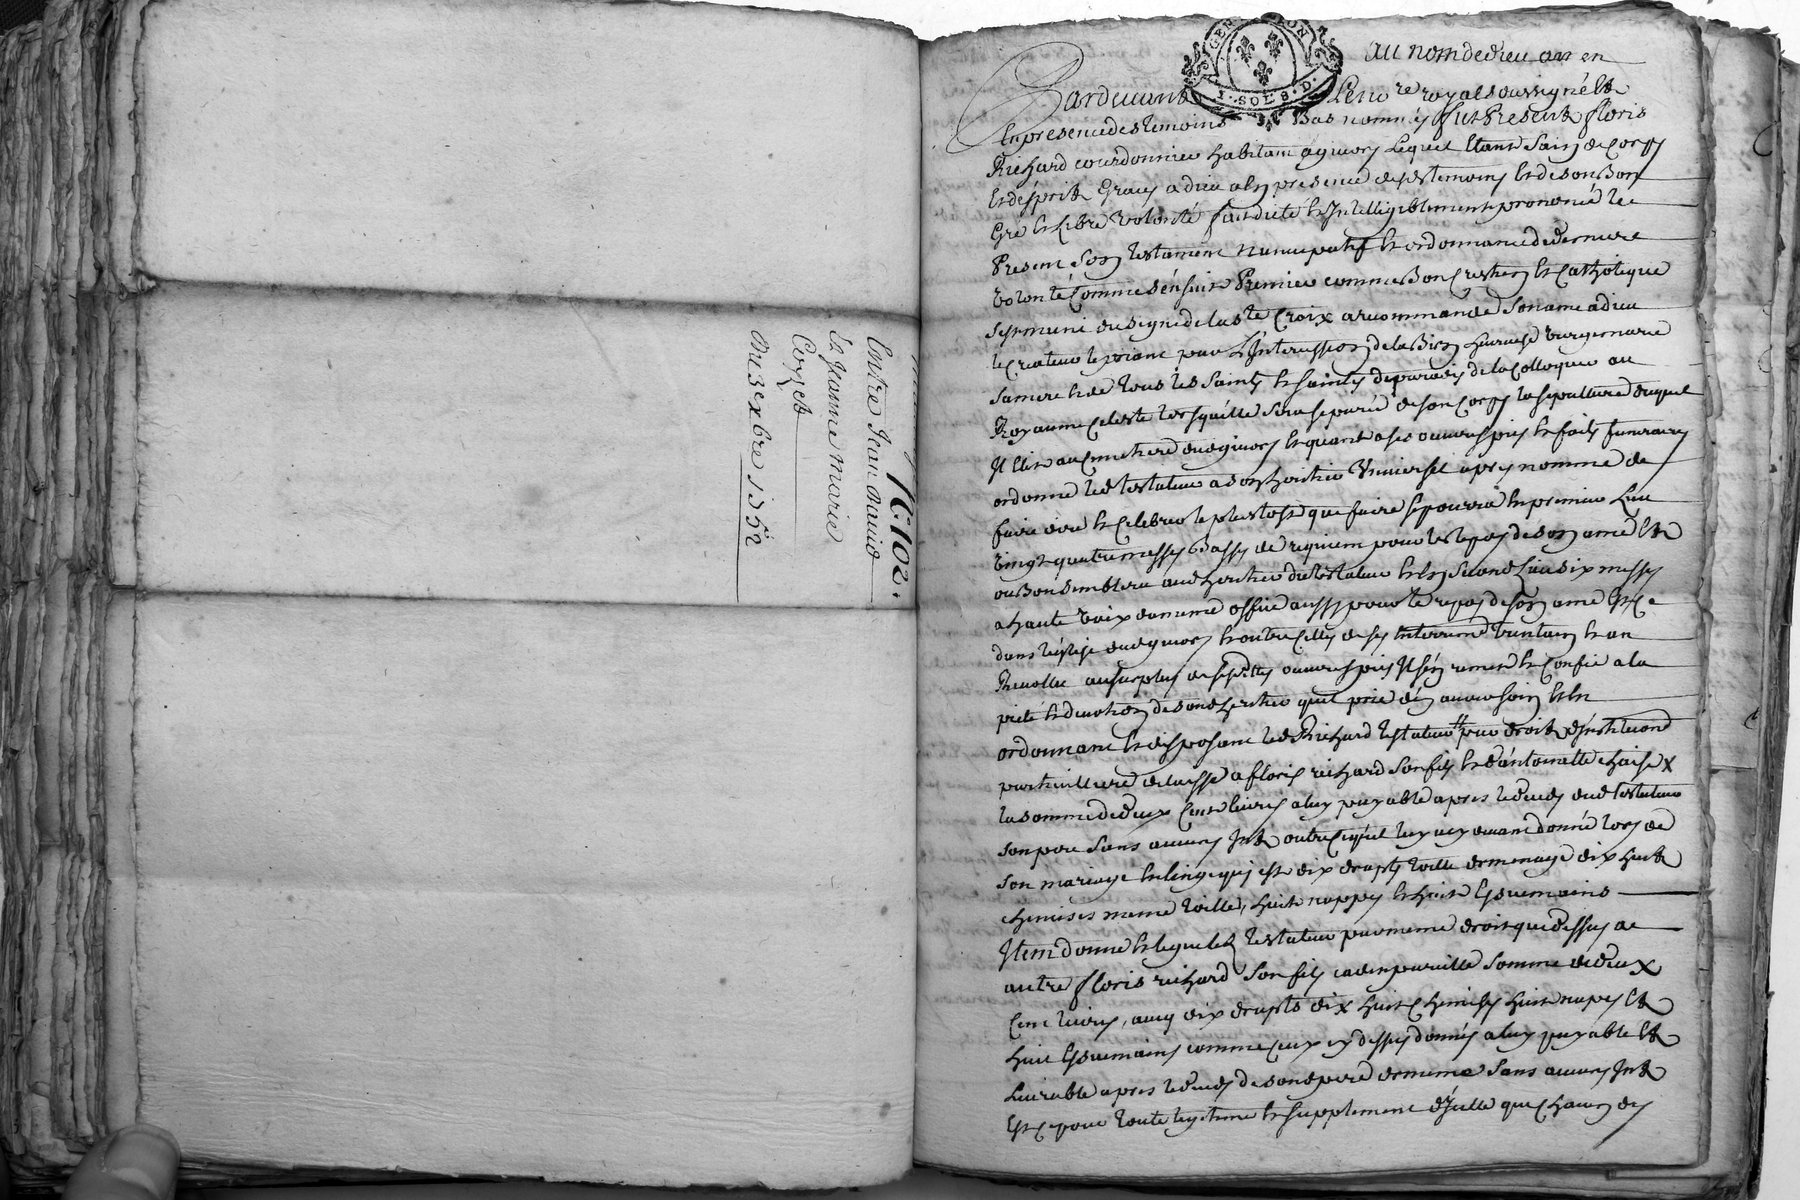 № 102.
Entre Jean Baud
& Jeanne Marie
Du 3e xbre 1752
GEN LYON
1. SOL 8. D.
au nom de dieu amen
Pardevant Le no.re royal soussigné Et
En presence des temoins Bas nommés fut Present floris
Richard courdonnier habitant a givors Lequel Etant Sain de Corps
Et d'ésprit Graces a dieu a En presence desds temoins Et de son Bon
Gré Et Libre volonté fait dicté Et Intelligiblement prononcé le
Present Son testament nuncupatif Et ordonnance de derniere
volonté Comme s'ensuit Premier comme Bon Crestien Et Catholique
s'est muni du signe de la Ste Croix a recommandé Son ame a dieu
le Createur le priant par L'Intercession de la Bien heureuse vierge marie
sa mere Et de tous les Saints Et Saintes de paradis de la Colloquer au
Royaume Celeste lorsquélle Sera Separée de son Corps la sepulture duquel
Il Elit au Cimetiere dudt givors Et quant a ses oeuvres pies Et frais funeraires
ordonne led testateur a son heritier Universel apres nommé de
faire dire Et Celebrer le plustost que faire se pourra En premier Lieu
vingt quatre messes Basses de requiem pour le repos de son ame Et
ou Bon Semblera aud heritier du testateur Et En Second Lieu dix messes
a haute voix du meme office aussy pour le repos de son ame Et Ce
dans l'église dudt givors Et outre Celles de ses Enterrement trentain Et an
Revollu au surplus de sesdttes oeuvres pies Il s'en remet Et Confie a la
pieté Et devotion de sond heritier quil prie d'en avoir soin Et En
ordonnant Et disposant led Richard testateur par droit d'institution
particulliere delaisse a floris richard Son fils Et d'antoinette chaise X
la somme de deux Cent livres a luy payable apres le deces dud testateur
son pere Sans aucuns Int outre Ce quil luy a cy devant donné lors de
Son mariage En linge qui est dix draps toille de menage dix huit
chemises meme toille, huit nappes Et huit Essuemains
Item donne Et legue led testateur par meme droit que dessus a
autre floris richard Son fils cadet pareille Somme de deux
Cent livres, avec dix draps dix huit Chemises huit napes Et
huit Essuemains comme Ceux cy dessus donnés a luy payable Et
Livrable apres le deces de sond pere de meme Sans aucuns Int
Et Ce pour toute legitime Et supplement d'ycelle que chacun des